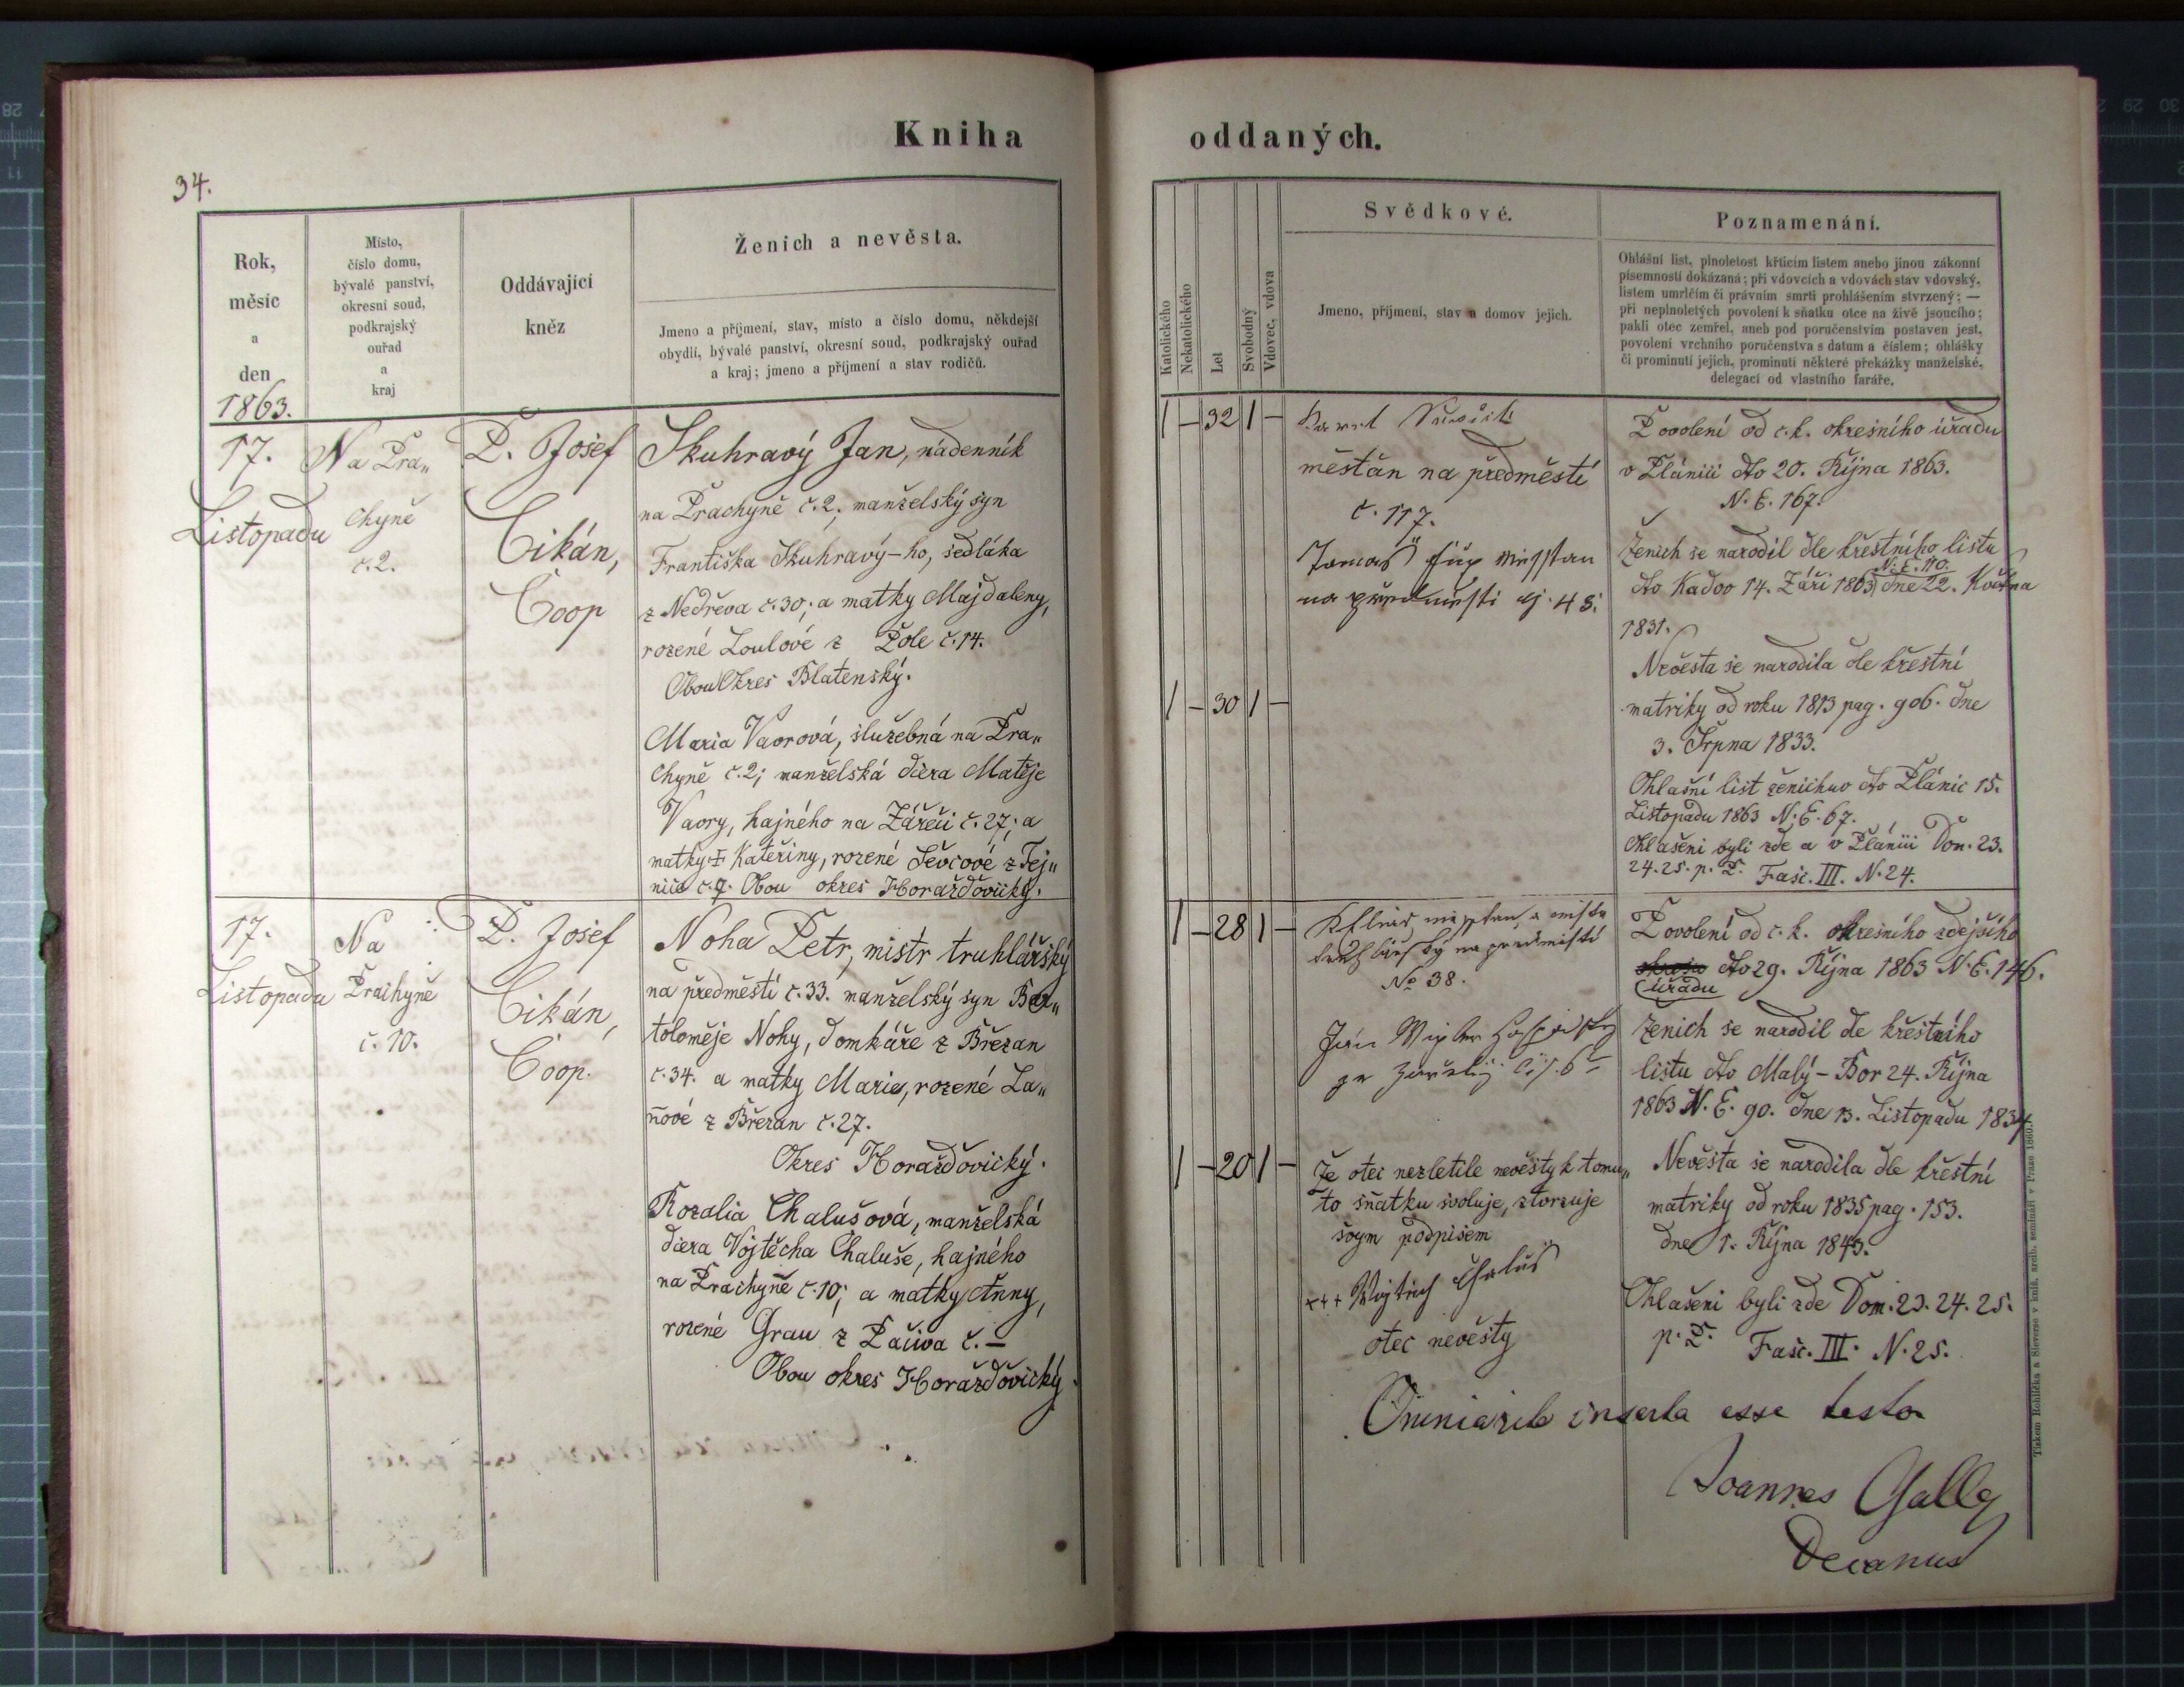 Kniha
oddaných.
34.
Rok,
měsíc
a
den
1863.
Místo,
číslo domu,
bývalé panství,
okresní soud,
podkrajský
ouřad
a
kraj
Oddávající
kněz
Ženich a nevěsta.
Jmeno a příjmení, stav, místo a číslo domu, někdejší
obydlí, bývalé panství, okresní soud, podkrajský ouřad
a kraj; jmeno a příjmení a stav rodičů.
17.
Listopadu
Na Pra„
chyně
č. 2.
P. Josef
Cikán,
Coop
Skuhravý Jan, nádenník
na Prachyně č. 2, manželský syn
Františka Skuhravý-ho, sedláka
z Nedřeva č. 30; a matky Majdaleny,
rozené Loulové z Pole č. 14.
Obou Okres Blatenský.
Maria Vavrová, služebná na Pra„
chyně č. 2; manželská dcera Matěje
Vavry, hajného na Zářečí č. 27; a
matky † Kateřiny, rozené Ševcové z Tej„
nice č. 7. Obou okres Horažďovický.
17.
Listopadu
Na
Prachyně
č. 10.
P. Josef
Cikán,
Coop.
Noha Petr, mistr truhlářský
na předměstí č. 33. manželský syn Bar„
toloměje Nohy, domkáře z Břežan
č. 34. a matky Marie, rozené La„
ňové z Břežan č. 27.
Okres Horažďovický.
Rozalia Chalušová, manželská
dcera Vojtěcha Chaluše, hajného
na Prachyně č. 10; a matky Anny,
rozené Grau z Pačiva č. –
Obou okres Horažďovický.
Katolického
Nekatolického
Let
Svobodný
Vdovec, vdova
Svědkové.
Jmeno, příjmení, stav a domov jejich.
Poznamenání.
Ohlášní list, plnoletost křticím listem anebo jinou zákonní
písemností dokázaná; při vdovcích a vdovách stav vdovský,
listem umrlčím či právním smrti prohlášením stvrzený; —
při neplnoletých povolení k sňatku otce na živě jsoucího;
pakli otec zemřel, aneb pod poručenstvím postaven jest,
povolení vrchního poručenstva s datum a číslem; ohlášky
či prominutí jejich, prominutí některé překážky manželské,
delegací od vlastního faráře.
1 – 32 1 –
Karel
měštěn na předměstí
č. 117.
Tomas měsstan
na předměsti čj. 48.
1 – 30 1 –
Povolení od c. k. okresního úřadu
v Plánici dto 20. Října 1863.
N. E. 167.
Ženich se narodil dle křestního listu
N. E. 110.
dto Kadov 14. Září 1863 dne 22. Května
1831.
Nevěsta se narodila dle křestní
matriky od roku 1813 pag. 906. dne
3. Srpna 1833.
Ohlašní list ženichuv dto Plánic 15.
Listopadu 1863 N. E. 67.
Ohlašeni byli zde a v Plánici Dom. 23.
24. 25. p. P. Fasc. III. N. 24.
1 – 28 1 –
No 38.
Jan
1 – 20 1 –
Že otec nezletile nevěsty k tomu„
to sňatku svoluje, ztvrzuje
svym podpisem
+++ Wojtich Chaluš
otec nevěsty
Povolení od c. k. okresního zdejšího
dto 29. Října 1863 N. E. 146.
úřadu
Ženich se narodil dle křestního
listu dto Malý-Bor 24. Října
1863 N. E. 90. dne 13. Listopadu 1834
Nevěsta se narodila dle křestní
matriky od roku 1835 pag. 153.
dne 1. Října 1843.
Ohlašeni byli zde Dom. 23. 24. 25.
p. P. Fasc. III. N. 25.
Omnia rite inserta esse testor
Joannes Galle
Decanus
Tiskem Rohlíčka a Sieverse v kníž. arcib. semináři v Praze 1860.